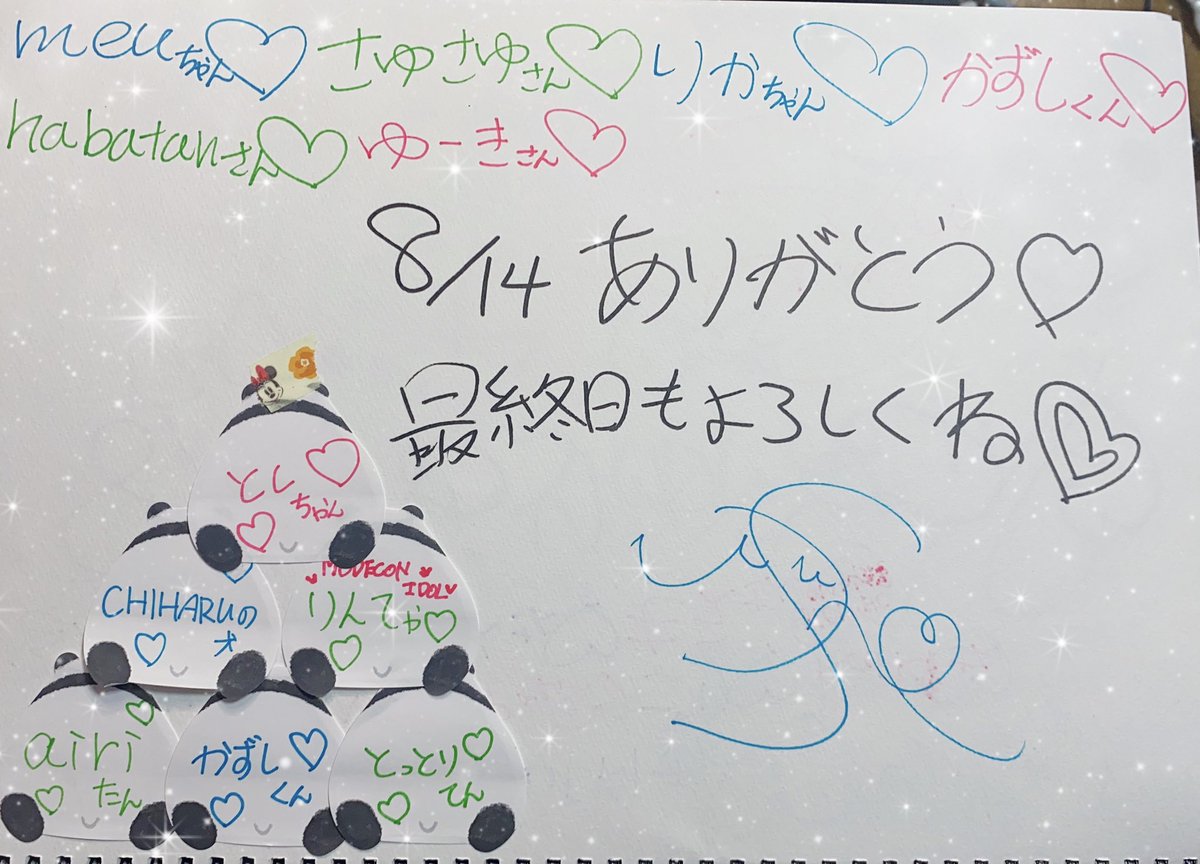 meuちゃん♡ さゆさゆさん♡ りかちゃん♡ かずしくん♡
habatanさん♡ ゆーきさん♡
8/14 ありがとう♡
最終日もよろしくね♡
とし♡
ちゃん
♡
CHIHARUの
♡ オ
♥MODECON♥
IDOL♥
りんてゃ♡
♡
airi♡
♡たん
かずし♡
♡くん
とっとり♡
♡てん